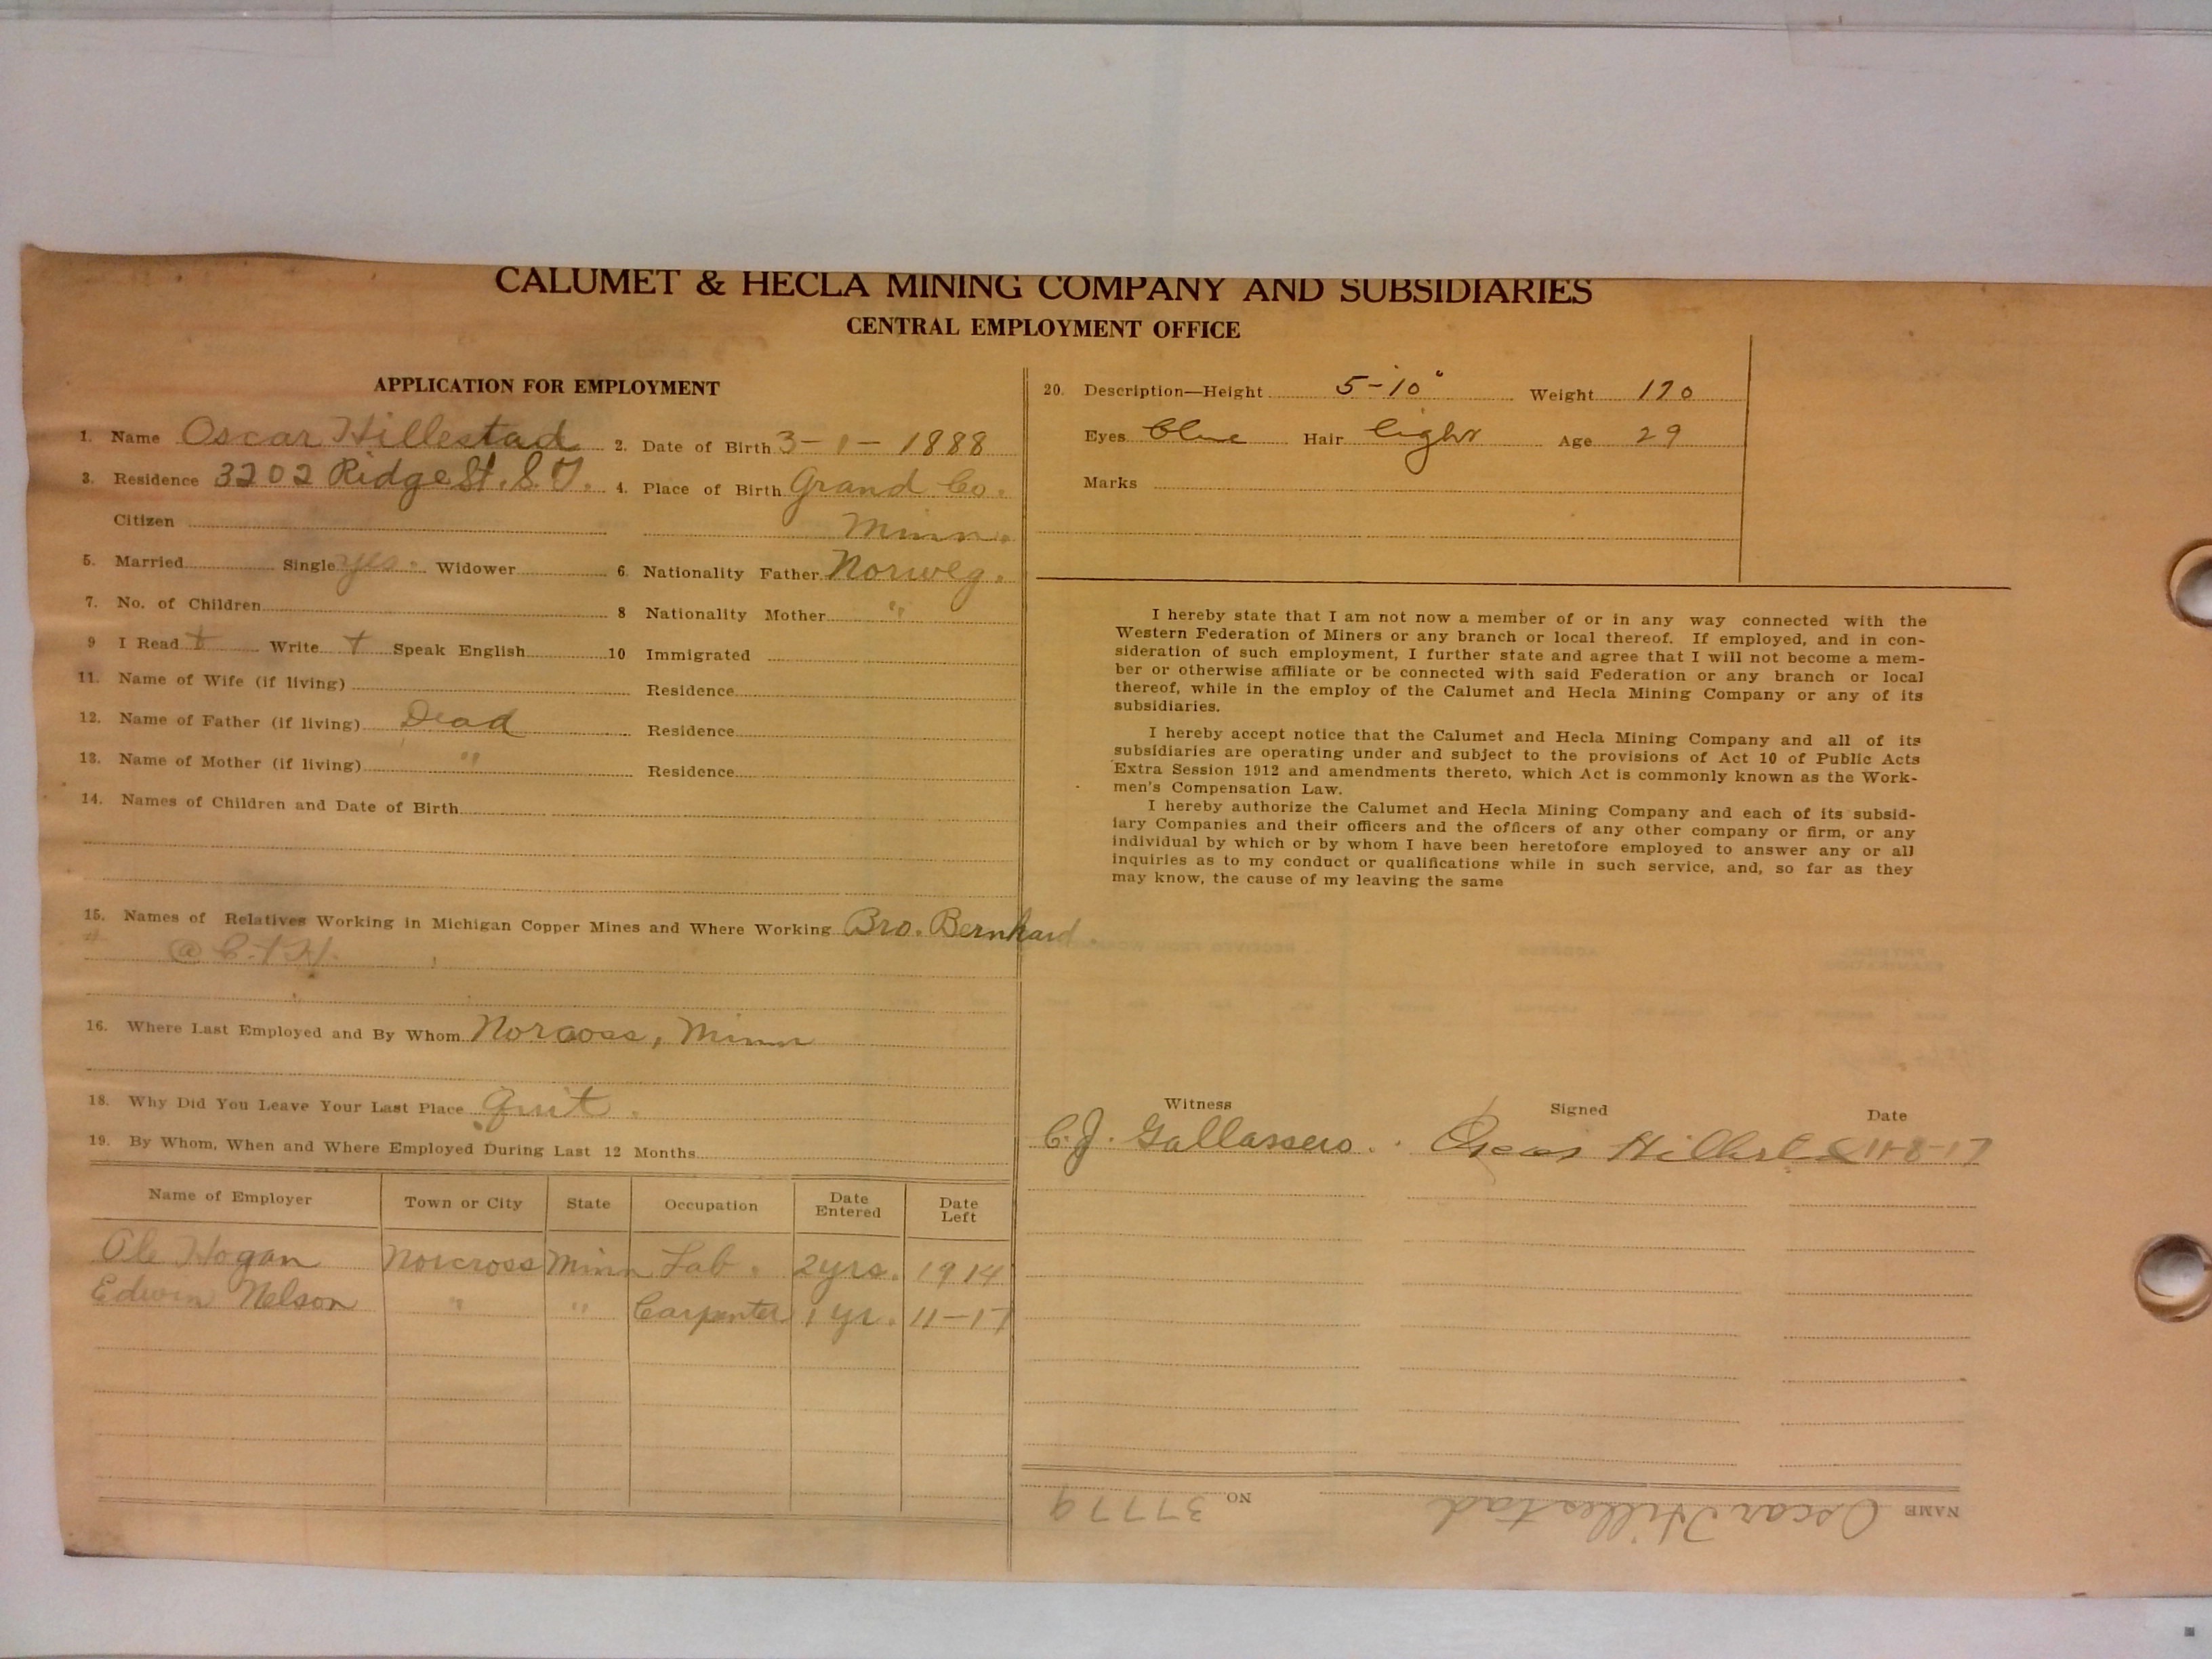 CALUMET & HECLA MINING COMPANY AND SUBSIDIARIES
CENTRAL EMPLOYMENT OFFICE
APPLICATION FOR EMPLOYMENT
1. Name Oscar Hillestad 2. Date of Birth 3-1-1888
3. Residence 3202 Ridge St. S. J. 4. Place of Birth Grand Co.
Citizen Minn.
5. Married Single yes. Widower 6. Nationality Father Norweg.
7. No. of Children 8 Nationality Mother "
9 I Read + Write + Speak English 10 Immigrated
11. Name of Wife (if living) Residence
12. Name of Father (if living) Dead Residence
13. Name of Mother (if living) " Residence
14. Names of Children and Date of Birth
15. Names of Relatives Working in Michigan Copper Mines and Where Working Bro. Bernhard
@ C. + H.
16. Where Last Employed and By Whom Norcoss, Minn
18. Why Did You Leave Your Last Place Quit.
19. By Whom, When and Where Employed During Last 12 Months
Name of Employer Town or City State Occupation Date Entered Date Left
Ole Hogan Norcross Minn Lab. 2 yrs. 1914
Edwin Nelson " " Carpenter 1 yr. 11-17
20. Description—Height 5-10" Weight 170
Eyes blue Hair light Age 29
Marks
I hereby state that I am not now a member of or in any way connected with the
Western Federation of Miners or any branch or local thereof. If employed, and in con-
sideration of such employment, I further state and agree that I will not become a mem-
ber or otherwise affiliate or be connected with said Federation or any branch or local
thereof, while in the employ of the Calumet and Hecla Mining Company or any of its
subsidiaries.
I hereby accept notice that the Calumet and Hecla Mining Company and all of its
subsidiaries are operating under and subject to the provisions of Act 10 of Public Acts
Extra Session 1912 and amendments thereto, which Act is commonly known as the Work-
men's Compensation Law.
I hereby authorize the Calumet and Hecla Mining Company and each of its subsid-
iary Companies and their officers and the officers of any other company or firm, or any
individual by which or by whom I have been heretofore employed to answer any or all
inquiries as to my conduct or qualifications while in such service, and, so far as they
may know, the cause of my leaving the same
Witness Signed Date
C. J. Gallassero. Oscar Hillestad 11-8-17
NAME Oscar Hillestad NO 37779